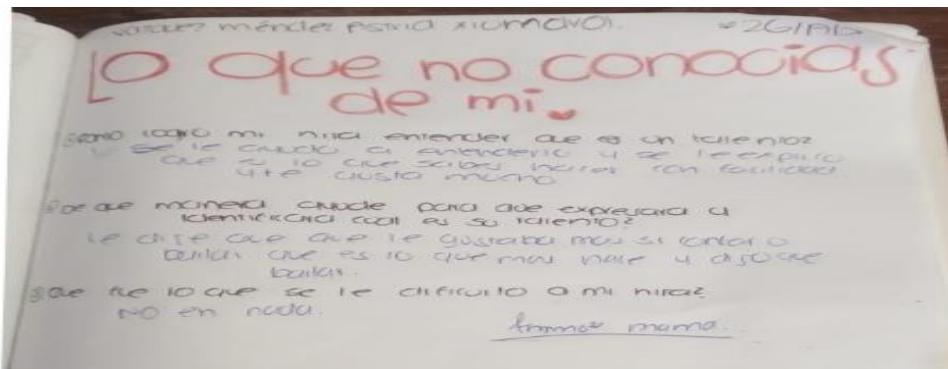 vasquez méndez Astrid xiomara.
LO que no conocias
de mi.
¿como logro mi niña entender que es un talento?
se le ayudo a entenderlo y se le explico
que es lo que sabes hacer con facilidad
y te gusta mucho
¿De que manera ayude para que expresara y
identificara cual es su talento?
le dije que que le gustaba mas si cantar o
bailar que es lo que mas hace y dijo que
bailar.
¿Que fue lo que se le dificulto a mi niña?
NO en nada.
mama